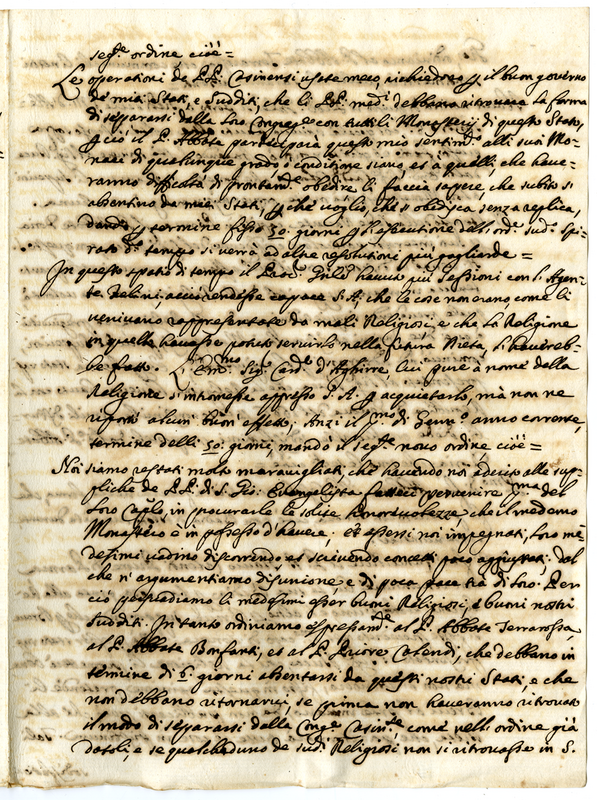 seg.te ordine cioè=
Le operationi de PP. Casinensi usate meco, richiedono p il buon governo
de miei Stati, e Sudditi, che li PP. med.i debbano ritrovare la forma
di separarsi dalla loro Congreg.e con tutti li Monasterij di questo Stato,
p ciò il P. Abbate parteciparà questo mio sentim.to alli suoi Mo-
naci di qualunque grado, ò conditione siano, et à quelli, che have-
ranno difficoltà di prontam.te obedire li faccia sapere, che subito si
absentino da miei Stati, p che voglio, che si obedisca senza replica,
dando p termine fisso 50. giorni p l'essecutione dell'ord.e sud.o Spi-
rato d.o tempo si verrà ad altre resolutioni più gagliarde=
In questo spatio di tempo il havuti più sessioni con l'Agen-
te acciò rendesse capace S. A., che le cose non erano come li
venivano rappresentate da mali Religiosi, e che la Religione
in quello havesse potuto servirlo nella futura Dieta, l'havereb-
be fatto. L'Em.mo Sig.r Card.e d'Aghirre, lui pure à nome della
Religione s'intromesse appresso S. A. p acquietarlo, mà non ne
riportò alcun buon effetto, Anzi il p.mo di Genn.o anno corrente,
termine delli 50. giorni, mandò il seg.te novo ordine, cioè=
Noi siamo restati molto maravigliati, che havendo noi aderito alle sup-
pliche de PP. di S. Gio: Evangelista fatteci pervenire p.ma del
loro Cap.lo, in procurarle le solite honorevolezze, che il medemo
Monastero è in possesso d'havere; et essersi noi impegnati, loro me-
desimi vadino discorrendo, et scrivendo concetti poco aggiustati; dal
che n'argumentiamo disunione, e di poca pace trà di loro. Per
ciò persuadiamo li medesimi esser buoni Religiosi, e buoni nostri
Sudditi. In tanto ordiniamo espressam.te al P. Abbate Terrarossa,
al P. Abbate Bonfanti, et al P. Priore Calendi, che debbano in
termine di 6. giorni absentarsi da questi nostri Stati, e che
non debbano ritornarvi, se prima non haveranno ritrovato
il modo di separarsi dalla Cong.e Casin.se, come nell'ordine già
datoli, e se qualcheduno de sud.i Religiosi non si ritrovasse in S.